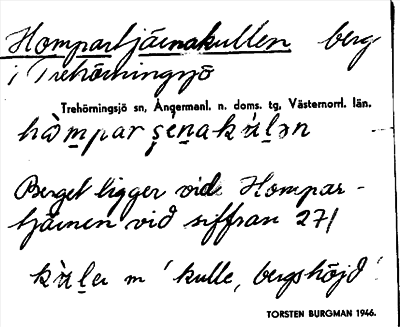 Hompartjärnakullen berg
i Trehörningsjö
Trehörningsjö sn, Ångermanl. n. doms. tg, Västernorrl. län.
hòm̱par şe̱ṉakùḻən
Berget ligger vid Hompar-
tjärnen vid siffran 271
kùḻer m 'kulle, bergshöjd'.
TORSTEN BURGMAN 1946.